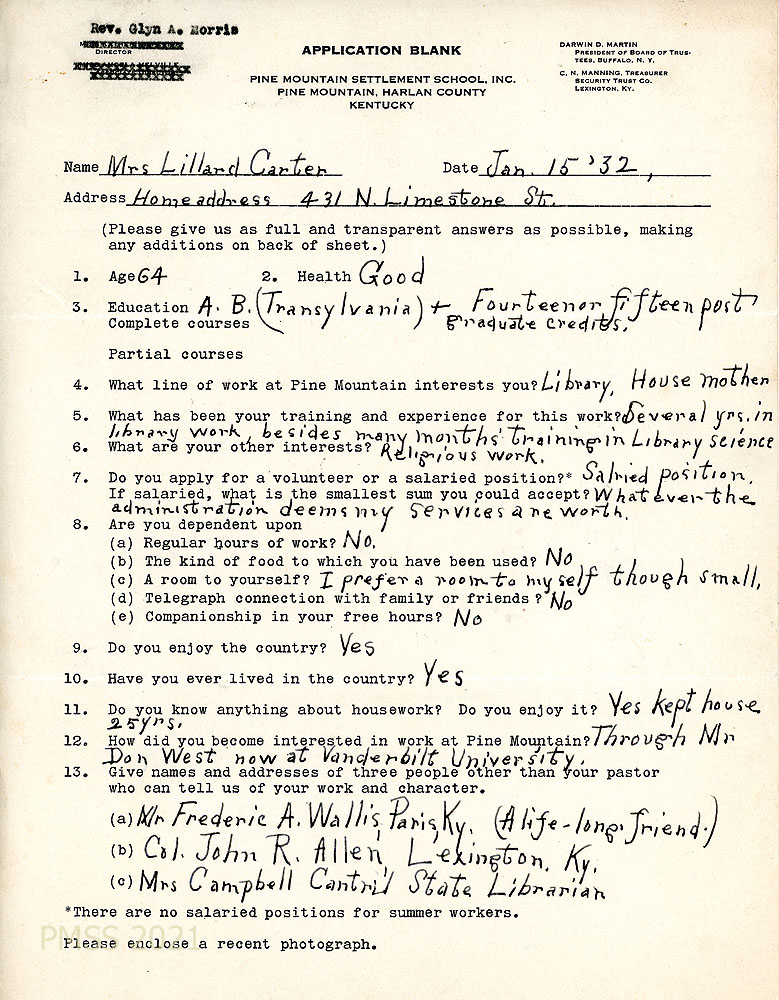 Rev. Glyn A. Morris
DIRECTOR
APPLICATION BLANK
DARWIN D. MARTIN
PRESIDENT OF BOARD OF TRUS-
TEES, BUFFALO, N. Y.
C. N. MANNING, TREASURER
SECURITY TRUST CO.
LEXINGTON, KY.
PINE MOUNTAIN SETTLEMENT SCHOOL, INC.
PINE MOUNTAIN, HARLAN COUNTY
KENTUCKY
Name Mrs Lillard Carter Date Jan. 15 '32,
Address Home address 431 N. Limestone St.
(Please give us as full and transparent answers as possible, making
any additions on back of sheet.)
1. Age 64 2. Health Good
3. Education A. B. (Transylvania) + Fourteen or fifteen post
Complete courses graduate credits.
Partial courses
4. What line of work at Pine Mountain interests you? Library, House mother
5. What has been your training and experience for this work? Several yrs. in
library work, besides many months' training in Library science
6. What are your other interests? Religious work.
7. Do you apply for a volunteer or a salaried position?* Salried position.
If salaried, what is the smallest sum you could accept? Whatever the
administration deems my services are worth.
8. Are you dependent upon
(a) Regular hours of work? No.
(b) The kind of food to which you have been used? No
(c) A room to yourself? I prefer a room to myself though small,
(d) Telegraph connection with family or friends? No
(e) Companionship in your free hours? No
9. Do you enjoy the country? Yes
10. Have you ever lived in the country? Yes
11. Do you know anything about housework? Do you enjoy it? Yes kept house
25 yrs.
12. How did you become interested in work at Pine Mountain? Through Mr
Don West now at Vanderbilt University.
13. Give names and addresses of three people other than your pastor
who can tell us of your work and character.
(a) Mr Frederic A. Wallis, Paris, Ky. (A life-long friend.)
(b) Col. John R. Allen, Lexington, Ky.
(c) Mrs Campbell Cantril State Librarian
*There are no salaried positions for summer workers.
PMSS 2021
Please enclose a recent photograph.